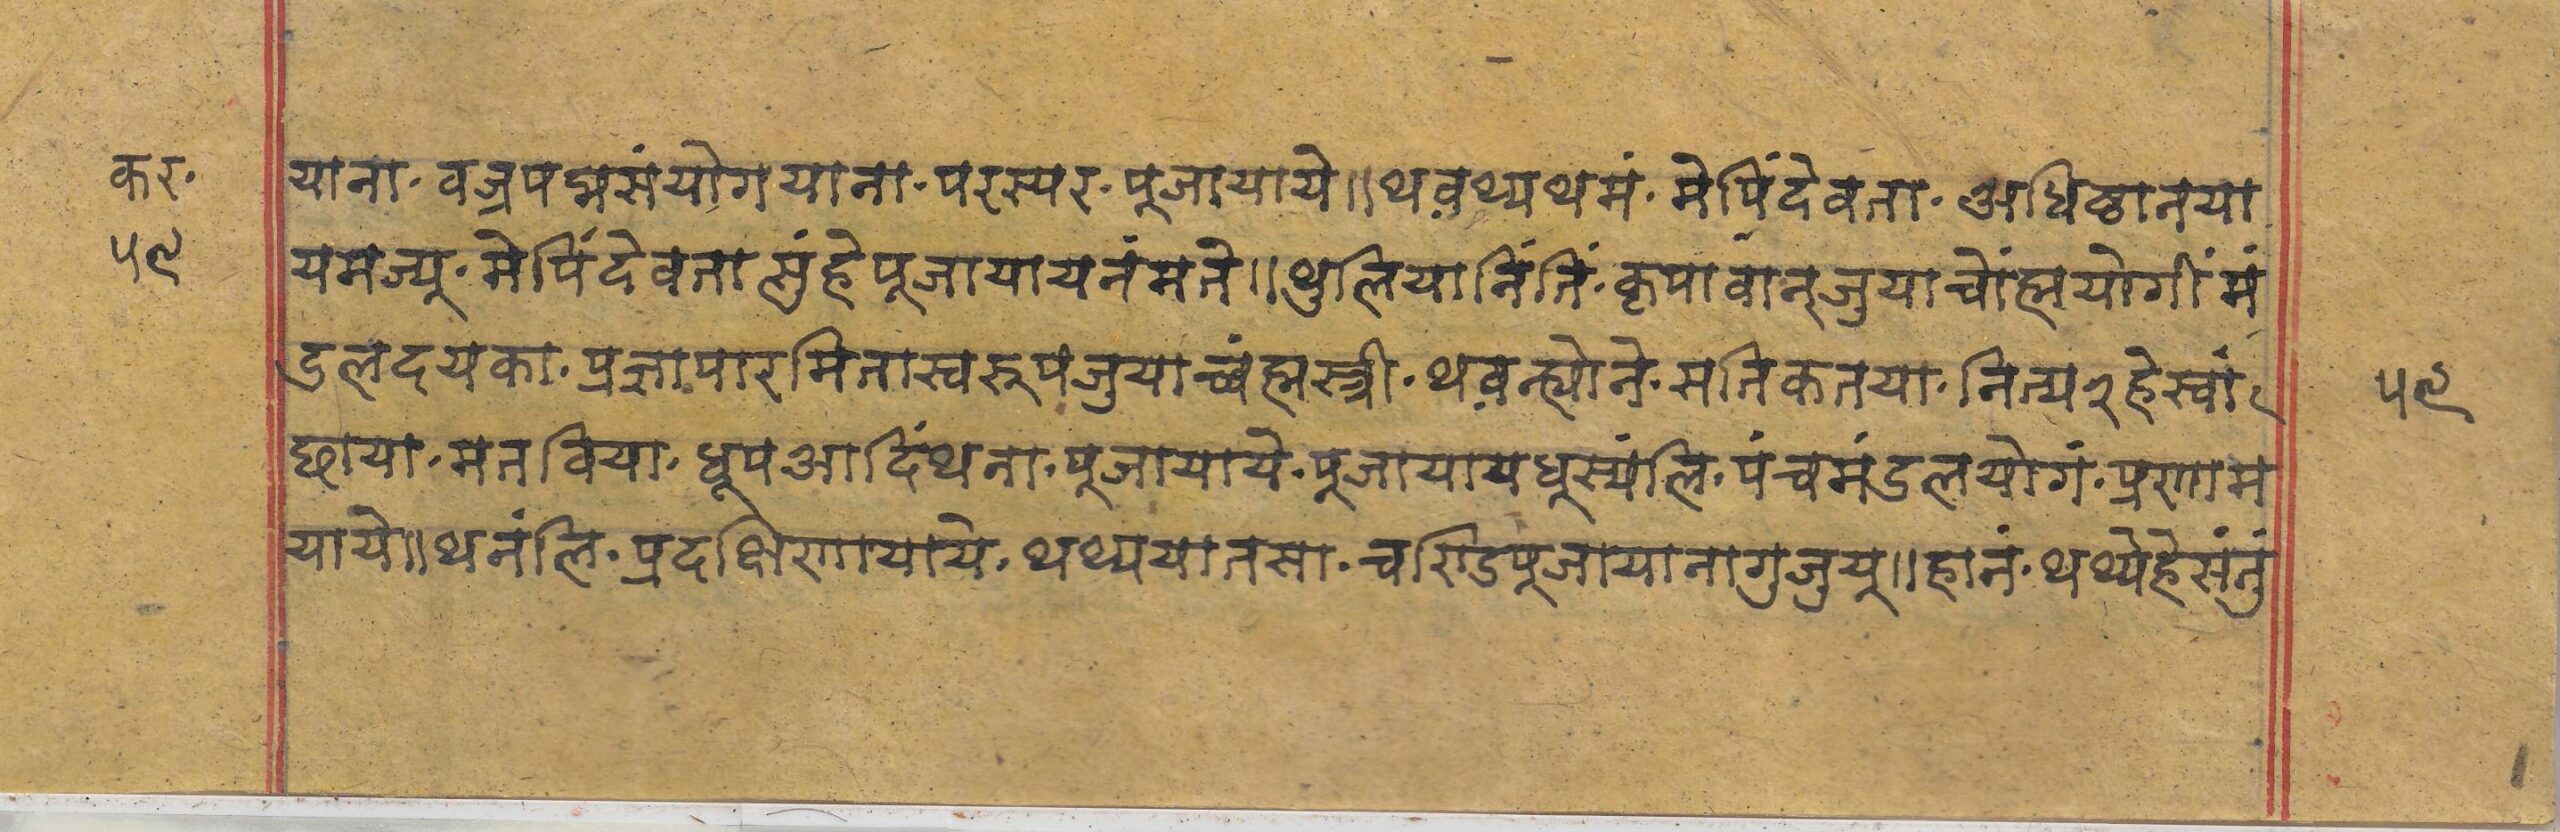 कर· याना· वज्रपद्मसंयोगयाना· परस्पर· पूजायाये॥थव़थ्यथमं· मेपिंदेवता· अधिष्ठानया
५९ यमज्यू· मेपिंदेवतासुंहेपूजायायनंमते॥थुलियानिंतिं· कृपावान्जुयाचोंह्मयोगीं मं
डलदयका· प्रज्ञापारमितास्वरूपंजुयाच्वंह्मस्त्री· थव़न्ह्योने· मतिकतया· नित्य२हेस्वां ५९
छाया· मतविया· धूपआदिंथना· पूजायाये· पूजायायधुस्यंलि· पंचमंडलयोगं· प्रणाम
याये॥थनंलि· प्रदक्षिणायाये· थथ्ययातसा· चण्डिपूजायानागुजुयू॥हानं· थथ्यंहेसंतुं